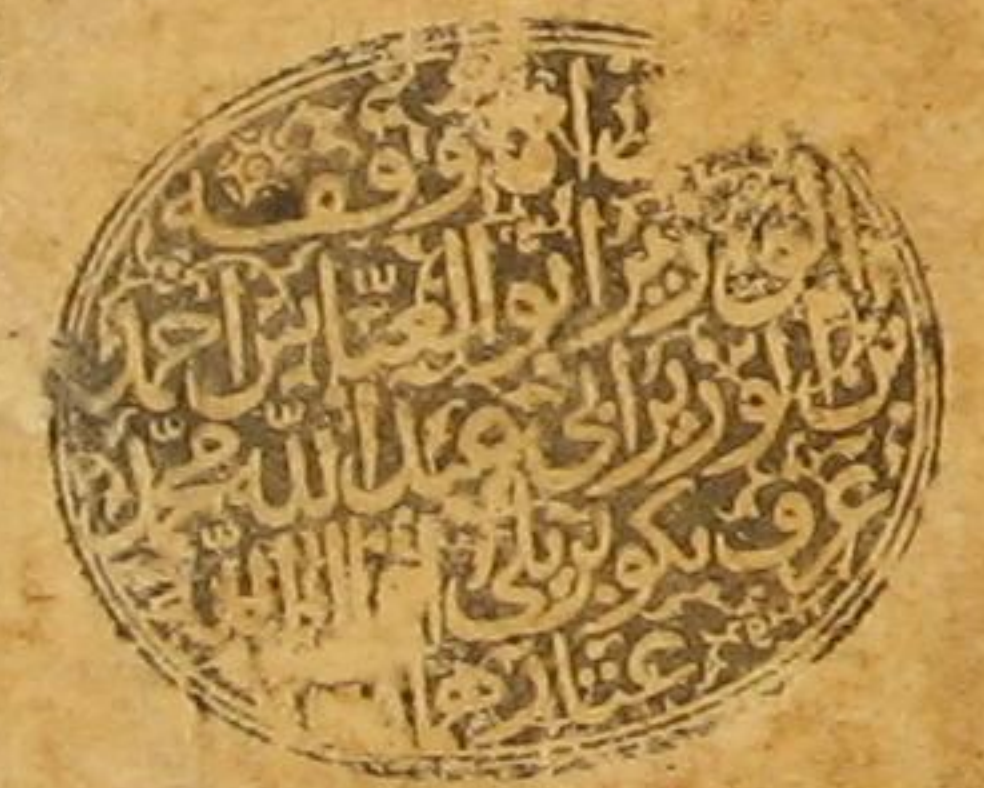 وقفه
الوزير ابو العباس احمد
بن الوزير ابي عبد الله محمد
عرف بكوبريلي الله
عثارهما